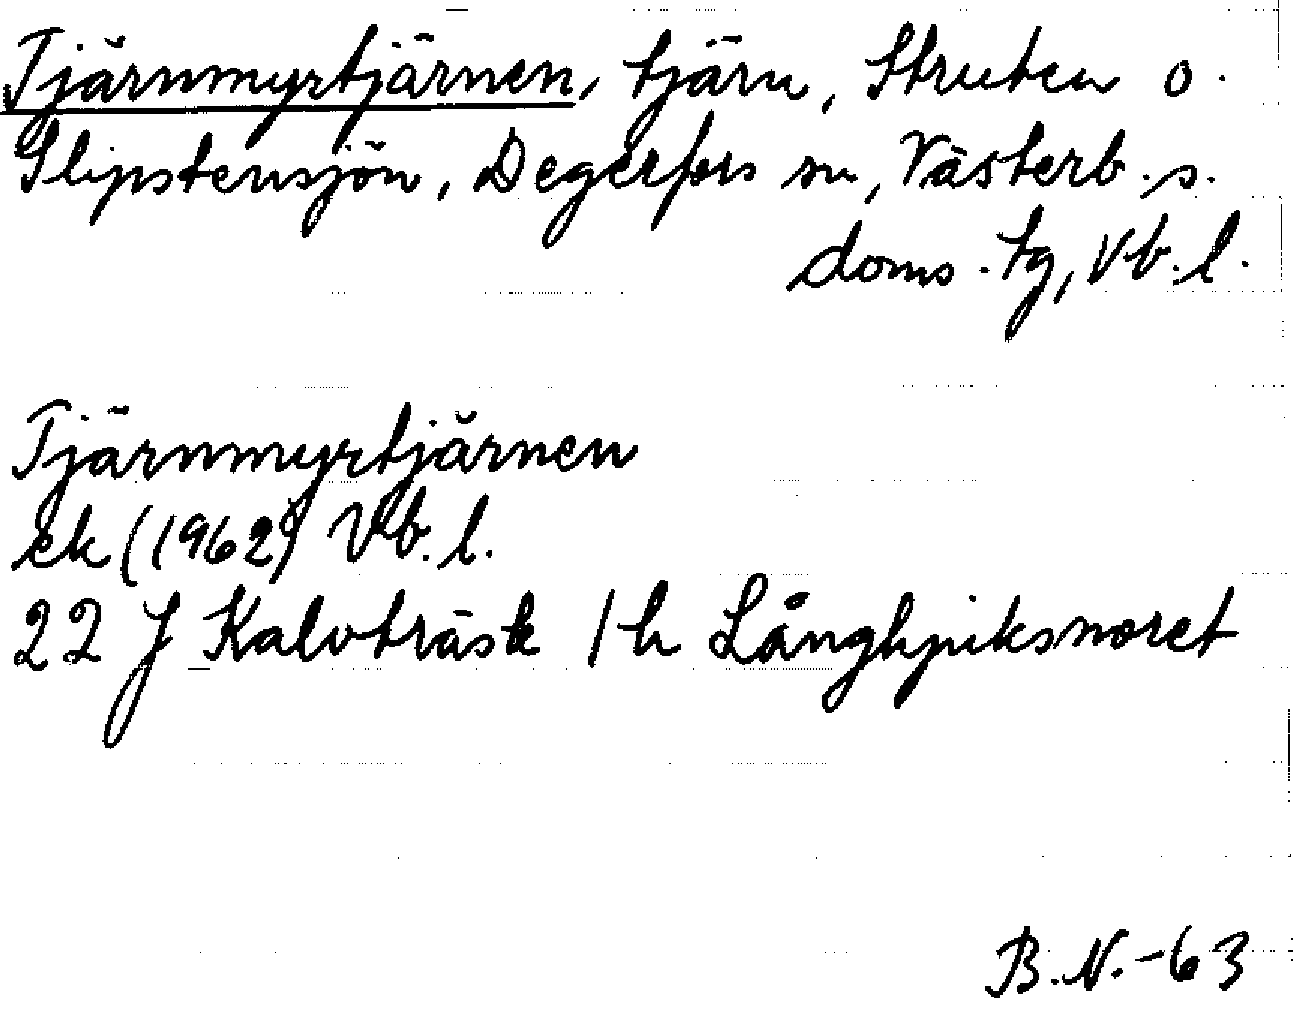 Tjärnmyrtjärnen, tjärn, Struten o.
Slipstensjön, Degerfors sn, Västerb. s.
doms. tg, Vb. l.
Tjärnmyrtjärnen
ek (1962) Vb. l.
22 J Kalvträsk 1 h Långhjuksnoret
B.N.-63